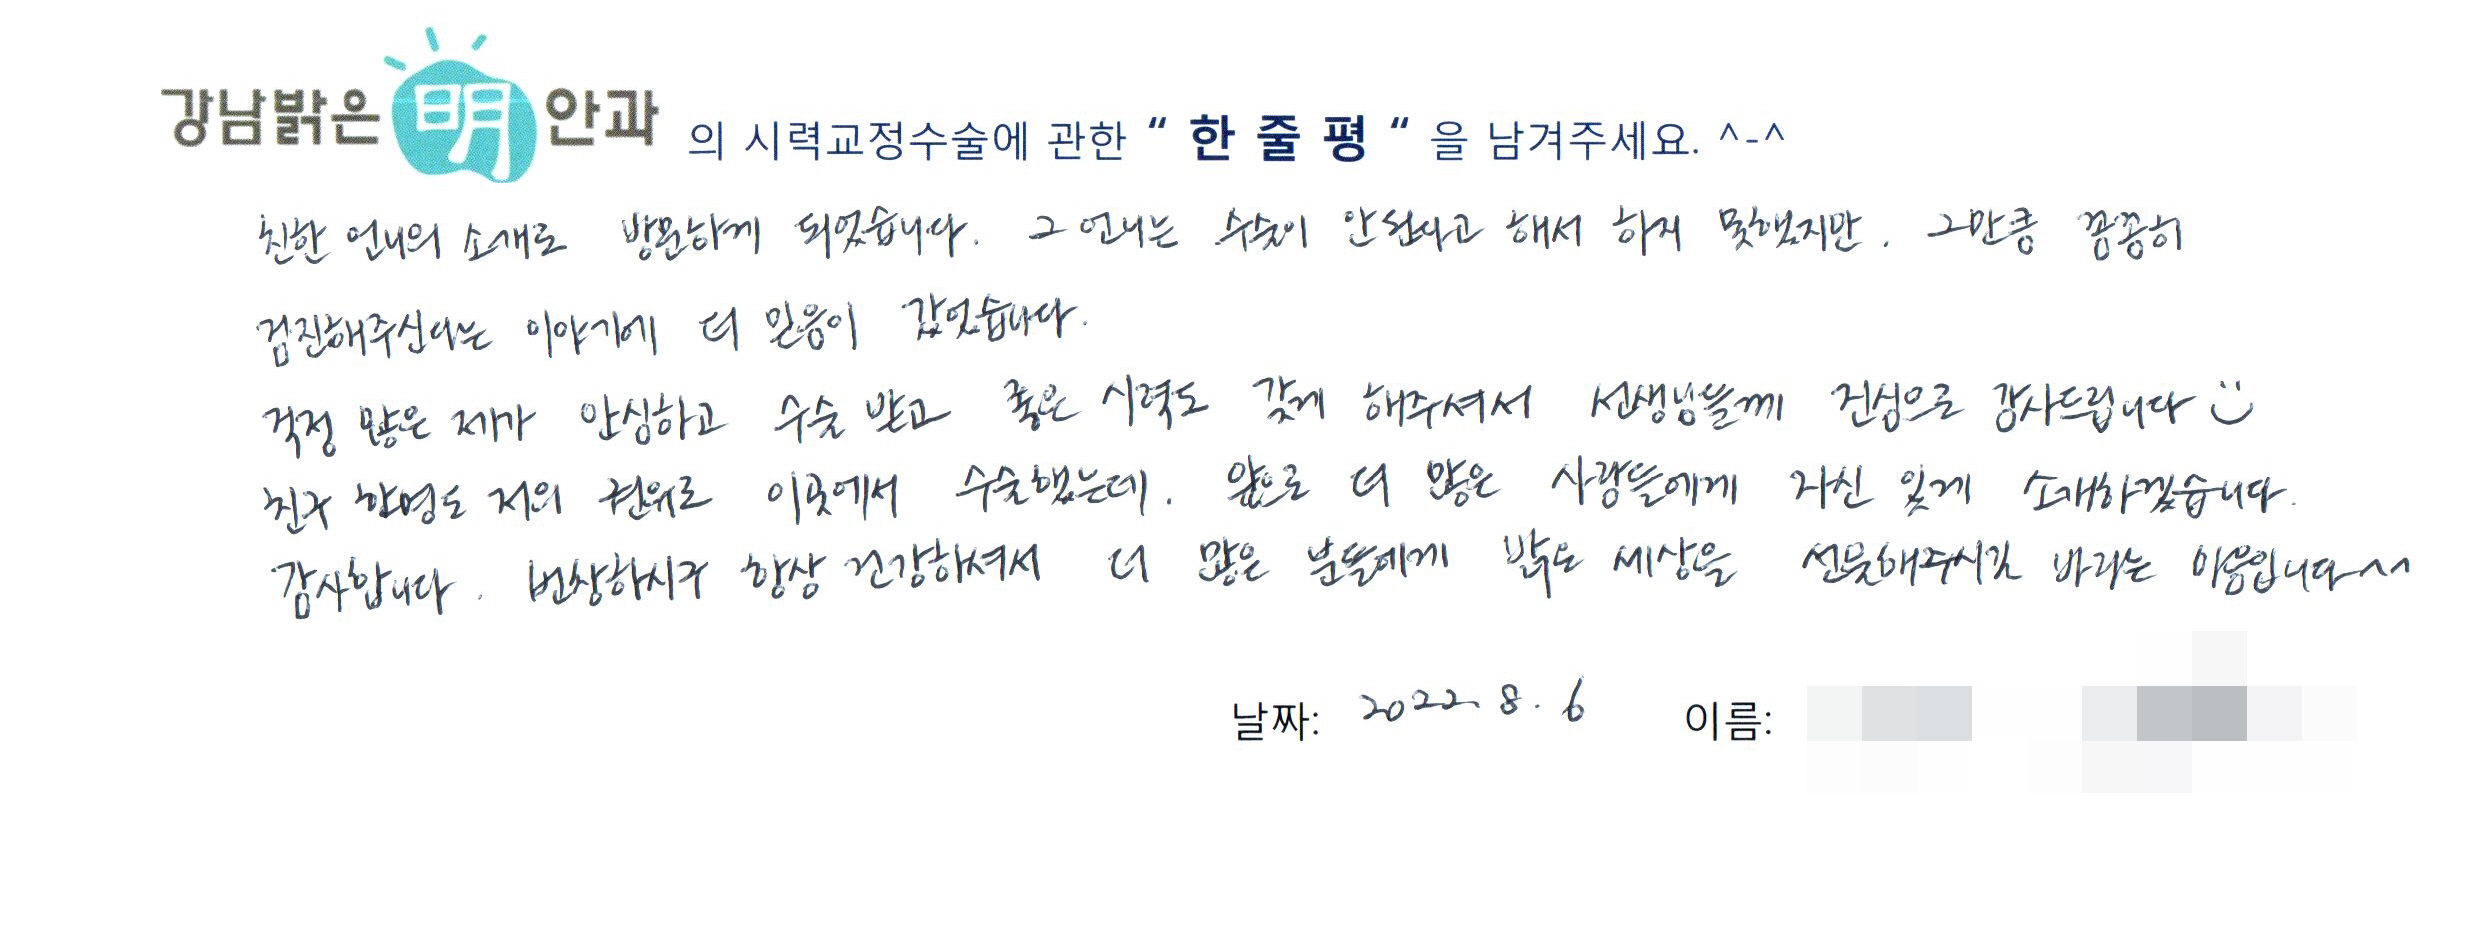 강남밝은明안과 의 시력교정수술에 관한 “ 한 줄 평 “ 을 남겨주세요. ^-^
친한 언니의 소개로 방문하게 되었습니다. 그 언니는 수술이 안된다고 해서 하지 못했지만, 그만큼 꼼꼼히
검진해주신다는 이야기에 더 믿음이 갔었습니다.
걱정 많은 제가 안심하고 수술 받고 좋은 시력도 갖게 해주셔서 선생님들께 진심으로 감사드립니다
친구 한명도 저의 권유로 이곳에서 수술했는데, 앞으로 더 많은 사람들에게 자신 있게 소개하겠습니다.
감사합니다. 번창하시구 항상 건강하셔서 더 많은 분들에게 밝은 세상을 선물해주시길 바라는 마음입니다^^
날짜: 2022. 8. 6 이름: